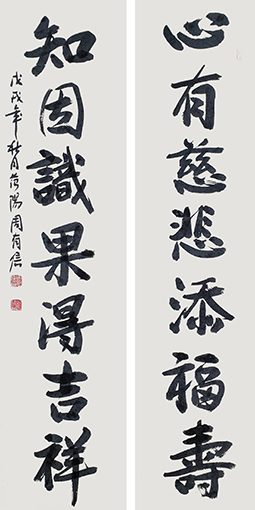 心有慈悲添福壽
知因識果得吉祥
戊戌年秋月范陽周有信